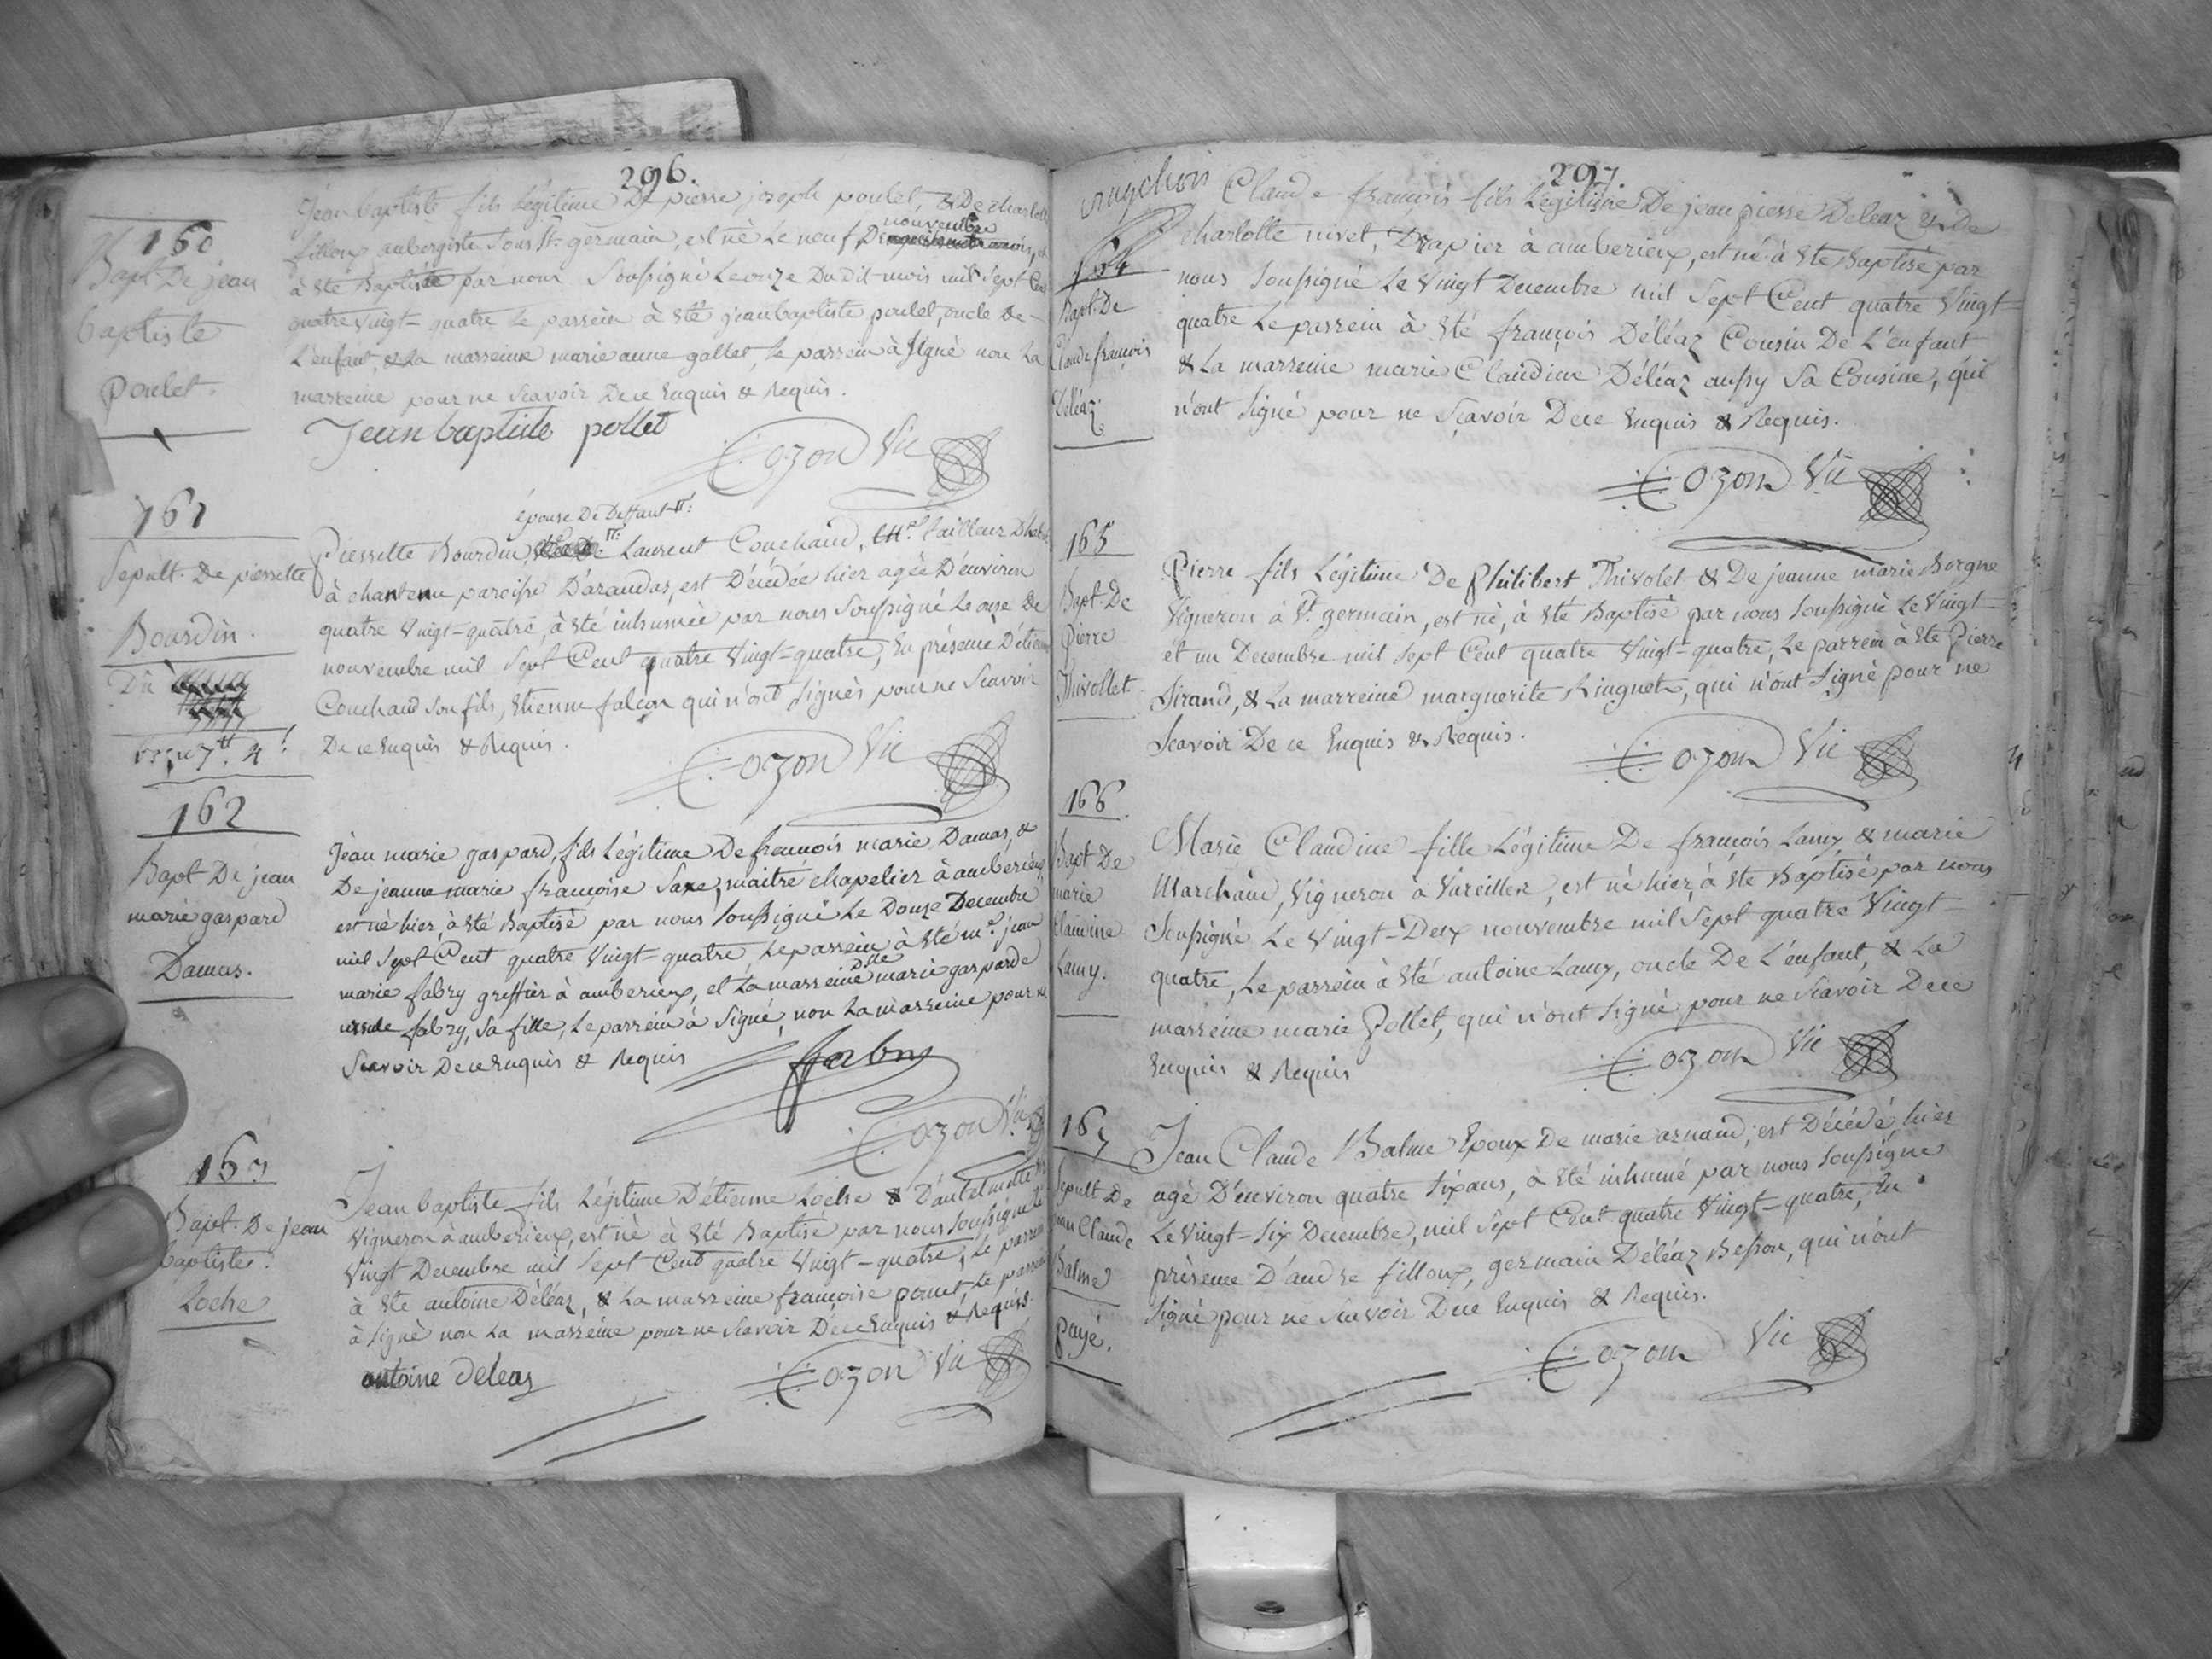 296.
160
Bapt. De jean
baptiste
poulet.
Jean baptiste fils Légitime De pierre joseph poulet, & De charlotte
filloux aubergiste sous St. germain, est né Le neuf De nouvembre
à été Baptisé par nous soussigné Le onze Du dit mois mil sept Cent
quatre vingt-quatre Le parrein à été jean baptiste poulet, oncle De
L'enfant, & La marreine marie anne gallet, Le parrein à signé non La
marreine pour ne sçavoir De ce Enquis & Requis.
Jean baptiste pollet
Cozon Vic
161
Sepult. De pierrette
Bourdin.
Dû
épouse De Deffunt
Pierrette Bourdin, Laurent Couchaud, tailleur D'habit
à chantenu paroisse D'arandas, est Décédée hier agée D'environ
quatre vingt-quatre, à été inhumée par nous soussigné Le onse De
nouvembre mil sept Cent quatre vingt-quatre, En présence D'étienne
Couchaud son fils, Etienne falcon qui n'ont signés pour ne sçavoir
De ce Enquis & Requis.
Cozon Vic
162
Bapt De jean
marie gaspard
Damas.
Jean marie gaspard, fils Légitime De francois marie Damas, &
De jeanne marie françoise Saxe, maitre chapelier à amberieux
est né hier, à été Baptisé par nous soussigné Le Douze Decembre
mil sept Cent quatre vingt-quatre, Le parrein à été mr. jean
marie fabry greffier à amberieux, et La marreine Dlle marie gasparde
ursule fabry, sa fille, Le parrein à signé, non La marreine pour ne
sçavoir De ce Enquis & Requis
fabry
Cozon Vic
163
Bapt. De jean
baptiste
Loche
Jean baptiste fils Légitime D'étienne Loche &
Vigneron à amberieux, est né à été Baptisé par nous soussigné Le
vingt Decembre mil sept Cent quatre vingt-quatre, Le parrein
à été antoine Déléaz, & La marreine françoise ponret, Le parrein
à signé non La marreine pour ne sçavoir De ce Enquis & Requis.
antoine deleaz
Cozon Vic
297
164
Bapt. De
Claude françois
Déléaz.
Claude françois fils Légitime De jean pierre Deleaz & De
charlotte nivet, Drapier à amberieux, est né à été Baptisé par
nous soussigné Le vingt Decembre mil sept Cent quatre vingt-
quatre Le parrein à été françois Déléaz Cousin De L'enfant
& La marreine marie Claudine Déléaz aussy sa Cousine, qui
n'ont signé pour ne sçavoir De ce Enquis & Requis.
Cozon Vic
165
Bapt. De
Pierre
Thivollet.
Pierre fils Légitime De Philibert Thivolet & De jeanne marie Borgne
vigneron à St. germain, est né, à été Baptisé par nous soussigné Le vingt-
et un Decembre mil sept Cent quatre vingt-quatre, Le parrein à été Pierre
Sirand, & La marreine marguerite Ringuet, qui n'ont signé pour ne
sçavoir De ce Enquis & Requis.
Cozon Vic
166
Bapt De
marie
Claudine
Lamy.
Marie Claudine fille Légitime De françois Lamy & marie
Marchand, vigneron à Vareilles, est né hier, à été Baptisé par nous
soussigné Le vingt-Deux nouvembre mil sept quatre vingt-
quatre, Le parrein à été antoine Lamy, oncle De L'enfant, & La
marreine marie Pollet, qui n'ont signé pour ne sçavoir De ce
Enquis & Requis
Cozon Vic
167
Sepult De
jean Claude
Balme
payé.
Jean Claude Balme Epoux De marie arnaud, est Décédé hier
agé D'environ quatre six ans, à été inhumé par nous soussigné
Le vingt-six Decembre, mil sept Cent quatre vingt-quatre, En
présence D'andre filloux, germain Déléaz Besson, qui n'ont
signé pour ne sçavoir De ce Enquis & Requis.
Cozon Vic